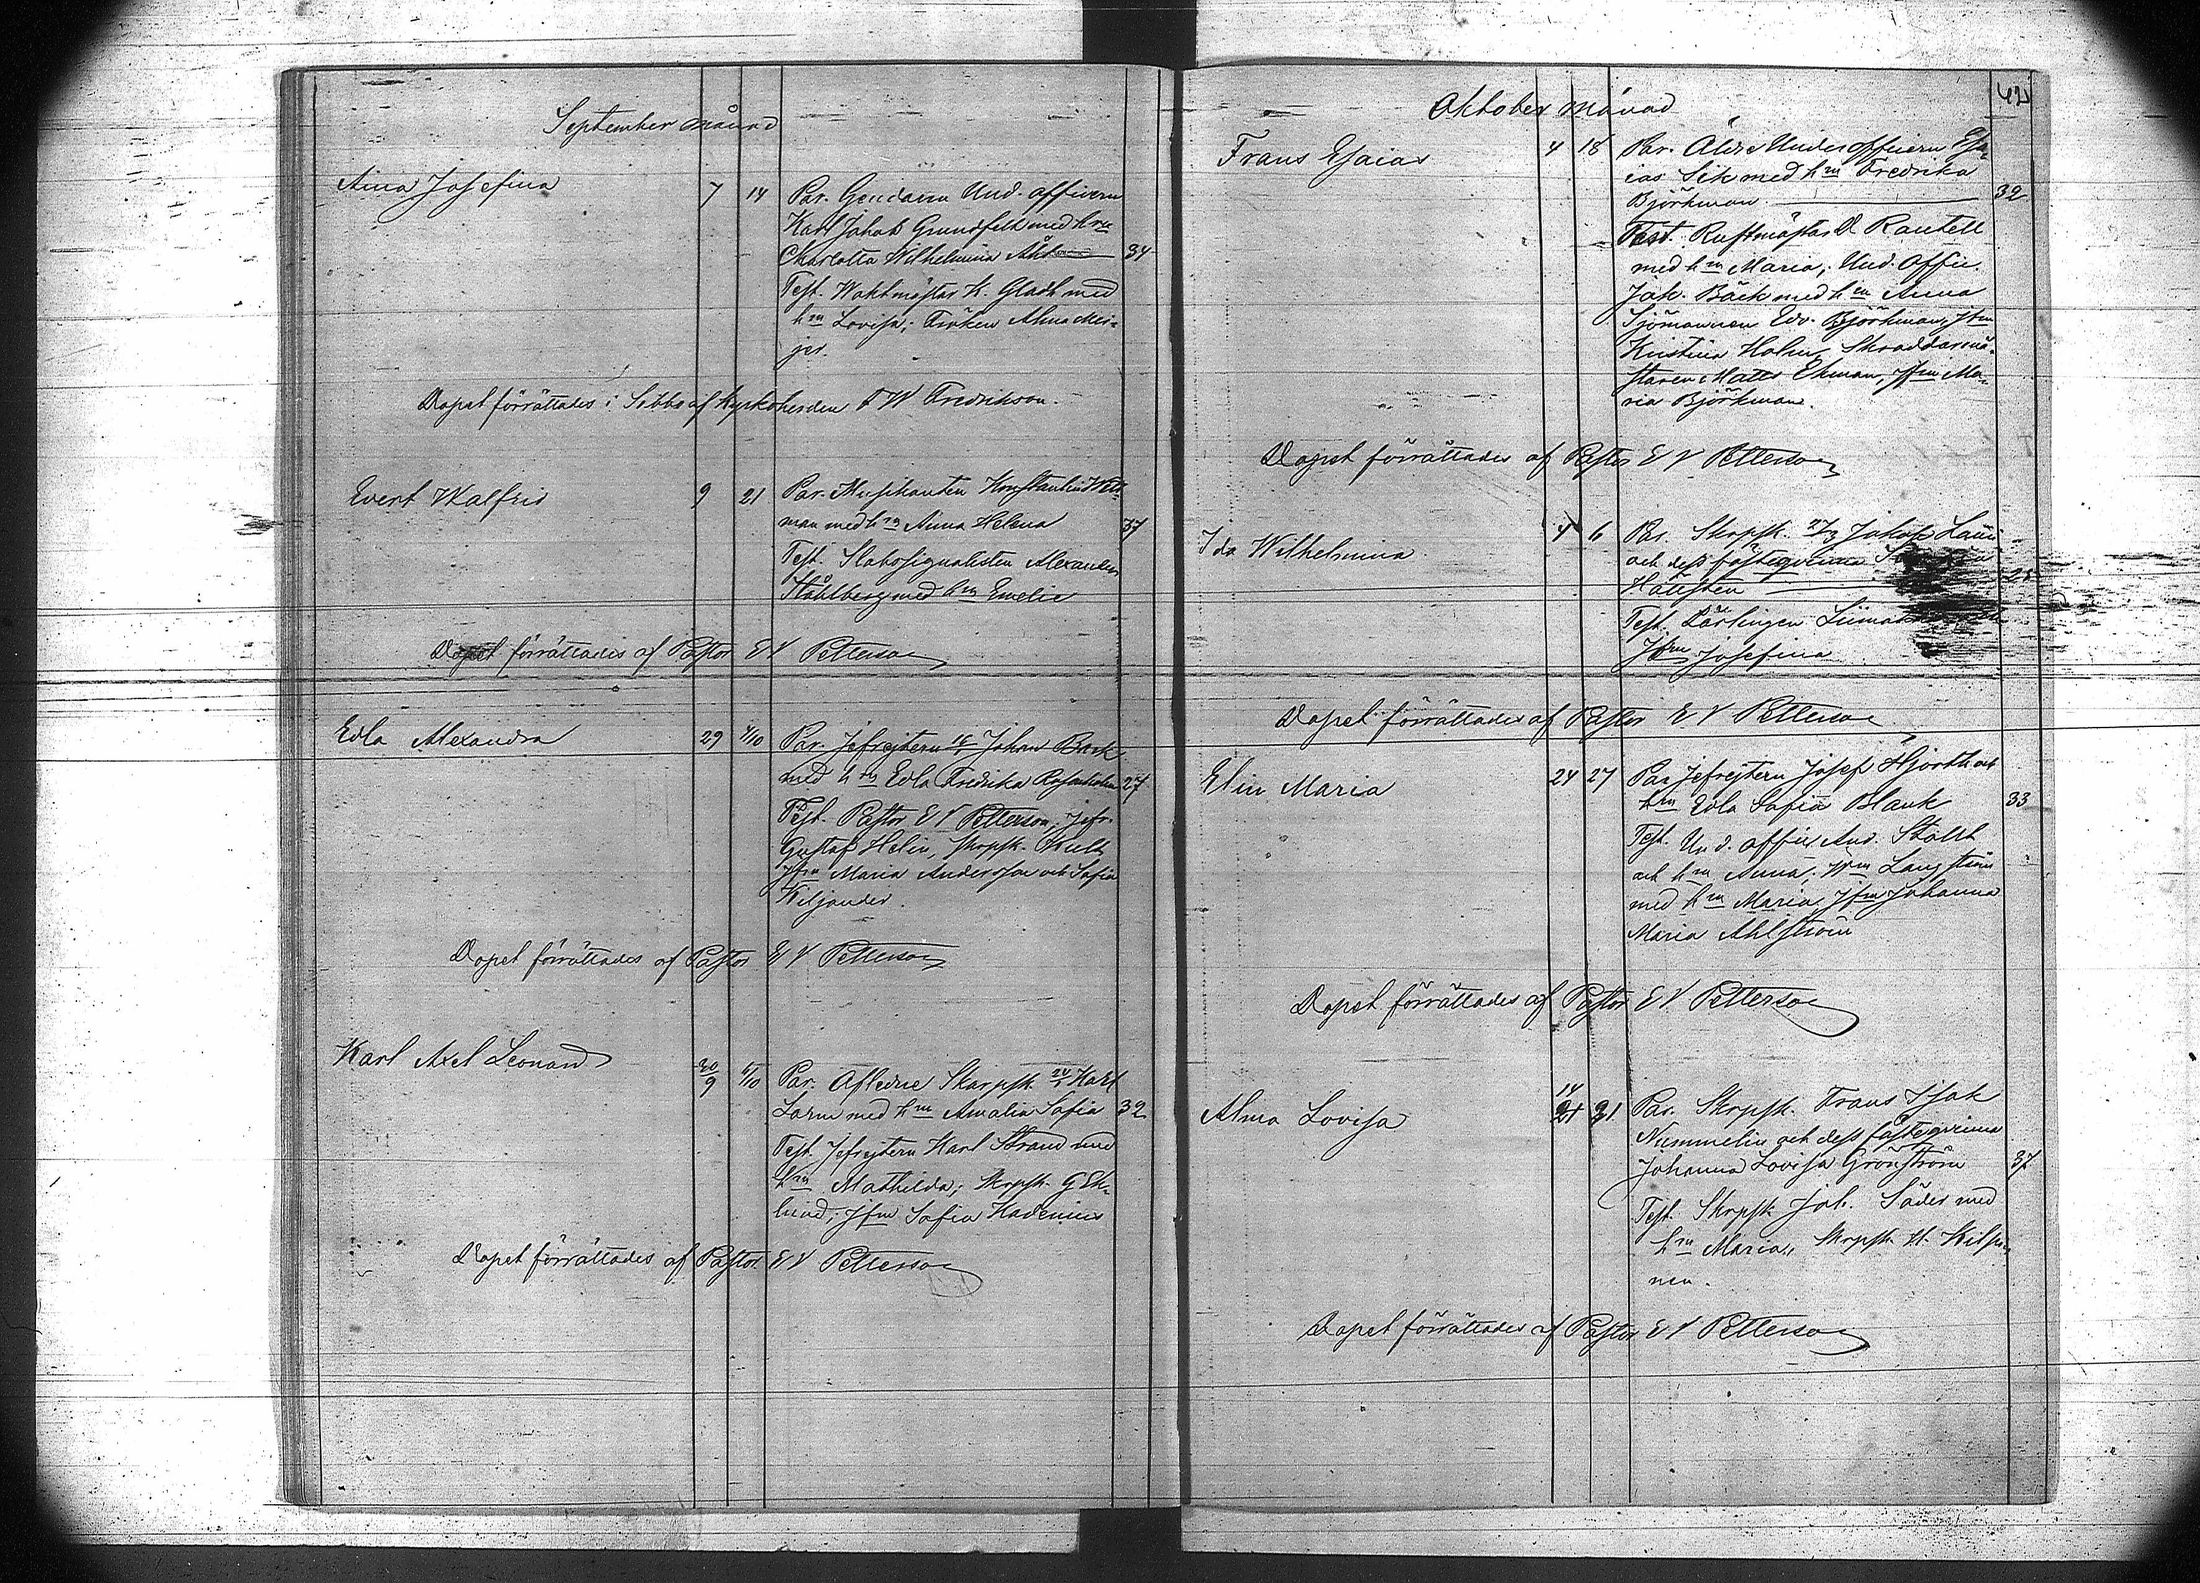 September månad
Aina Josefina 7 14 Par. Gendarm Und. officern
Karl Johab Grundfelt med hru
Charlotta Wilhelmina 34
Test. Waktmästar K. Gladh med
hru Lovisa; Fröken Alma Mei-
jer.
Dopet förrättades i Sibbo af Kyrkoherden F W Fredrikson.
Evert Walfrid 9 21 Par. Musikanten Konstantin Wid-
man med hru Anna Helena 37
Test. Stabssignalisten Alexander
Ståhlberg med hru Emelie
Dopet förrättades af Pastor E V Petterson
Edla Alexandra 29 4/10 Par. Jefrejtern Johan Back
med hru Edla Fredrika 27
Test. Pastor E V Petterson; Jefr.
Gustaf Helin, Skrpsk.
Jfru Maria Andersson och Sofia
Wiljander.
Dopet förrättades af Pastor E V Petterson
Karl Axel Leonard 30/9 /10 Par. Afledne Skarpsk. Karl
Lorm med hru Amalia Sofia 32
Test. Jefrejtern Karl Strand med
hru Mathilda; Skrpsk. G Ek-
lund; Jfru Sofia Kadenius
Dopet förrättades af Pastor E V Petterson
42
Oktober månad
Frans Esaias 4 18 Par. Äldre Underofficern Esa-
ias Sik med hru Fredrika
Björkman. 32
Test. Rustmästar D Rantell
med hru Maria; Und. offic.
Jak. Bäck med hru Anna
Sjömannen Edv. Björkman, Jfru
Kristina Holm, Skräddarmä-
staren Matts Ekman, Jfru Ma-
ria Björkman.
Dopet förrättades af Pastor E V Petterson
Ida Wilhelmina 4 6 Par. Skrpsk. Jakob
och dess fästeqvinna
Hallsten
Test. Kärlingen
Jfru Josefina
Dopet förrättades af Pastor E V Petterson
Elin Maria 24 27 Par. Jefrejtern Josef Hjorth och
hru Edla Sofia Blank 33
Test. Und. offic And. Stolt
och hru Anna; Långström
med hru Maria, Jfru Johanna
Maria Ahlström
Dopet förrättades af Pastor E V Petterson
Alma Lovisa 14 21 31 Par. Skrpsk. Frans Isak
Nummelin och dess fästeqvinna
Johanna Lovisa Grönström 37
Test. Skrpsk Joh. Söder med
hru Maria, Skrpsk. H. Kilpi-
nen.
Dopet förrättades af Pastor E V Petterson